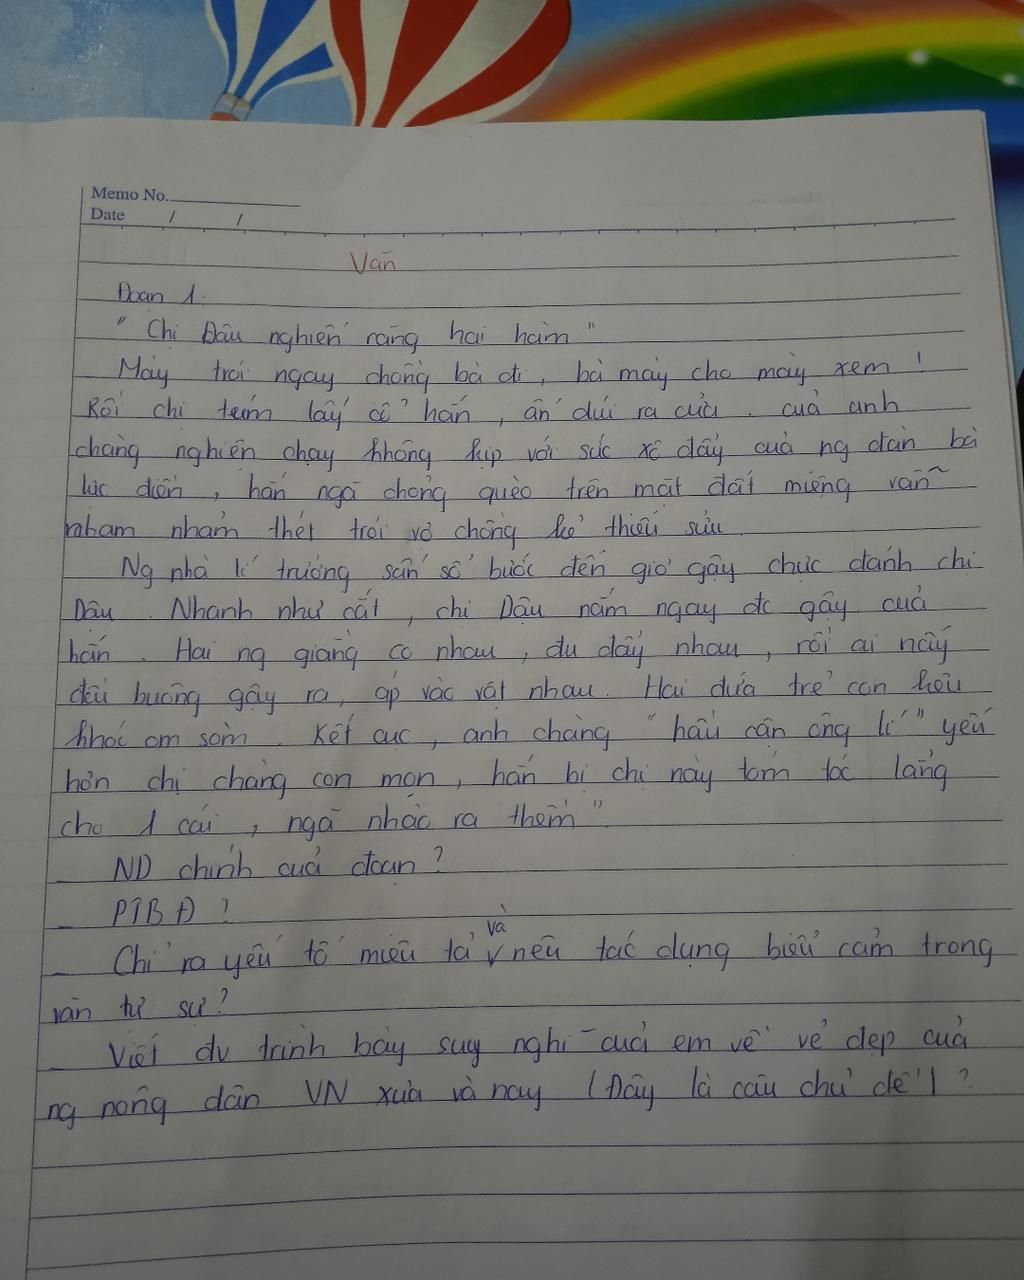 Memo No.
Date / /
Văn
Đoạn 1.
"Chị Dậu nghiến răng hai hàm"
Mày trói ngay chồng bà đi, bà mày cho mày xem!
Rồi chị túm lấy cổ hắn, ấn dúi ra cửa. của anh
chàng nghiện chạy không kịp với sức xô đẩy của ng đàn bà
lực điền, hắn ngã chỏng quèo trên mặt đất miệng vẫn
nham nhảm thét trói vợ chồng kẻ thiếu sưu.
Ng nhà lí trưởng sấn sổ bước đến giơ gậy chực đánh chị
Dậu. Nhanh như cắt, chị Dậu nắm ngay đc gậy của
hắn. Hai ng giằng co nhau, du đẩy nhau, rồi ai nấy
đều buông gậy ra, áp vào vật nhau. Hai đứa trẻ con kêu
khóc om sòm. Kết cục, anh chàng "hầu cận ông lí" yếu
hơn chị chàng con mọn, hắn bị chị này tóm tóc lẳng
cho 1 cái, ngã nhào ra thềm"
_ ND chính của đoạn?
_ PTBĐ?
_ Chỉ ra yếu tố miêu tả và nêu tác dụng biểu cảm trong
văn tự sự?
_ Viết đv trình bày suy nghĩ của em về vẻ đẹp của
ng nông dân VN xưa và nay (Đây là câu chủ đề)?